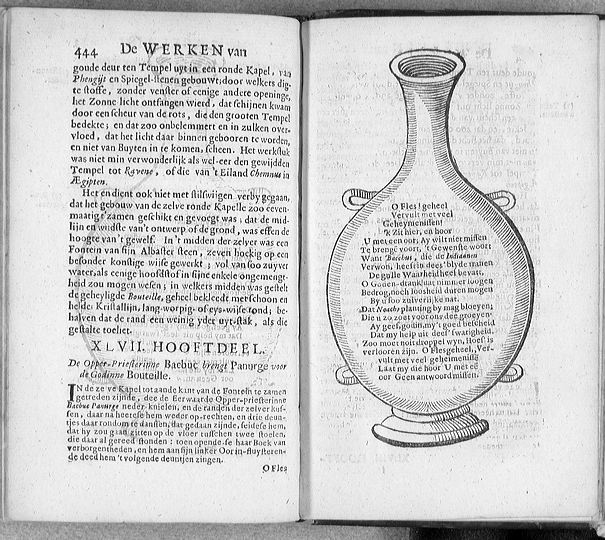 444 De WERKEN van
goude deur ten Tempel uyt in een ronde Kapel, van
Phengijt en Spiegel-steenen gebouwt: door welkers dig-
te stoffe, zonder venster of eenige andere openinge,
het Zonne licht ontfangen wierd, dat schijnen kwam
door een scheur van de rots, die den grooten Tempel
bedekte; en dat zoo onbelemmert en in zulken over-
vloed, dat het licht daar binnen gebooren te worden,
en niet van buyten in te komen, scheen. Het werkstuk
was niet min verwonderlijk als wel-eer den gewijdden
Tempel tot Ravene, of die van 't Eiland Chemnis in
Ægipten.
Het en dient ook niet met stilswijgen verby gegaan,
dat het gebouw van de zelve ronde Kapelle zoo even-
maatig zamen geschikt en gevoegt was; dat de mid-
lijn en wijdste van 't ontwerp of de grond, was effen de
hoogte van 't gewelf. In 't midden der zelver was een
Fontein van fijn Albaster steen, zeven hoekig op een
besonder konstige wijse gewerkt; vol van soo zuyver
water, als eenige hoofdstof in sijne enkele ongemengt-
heid zou mogen wesen; in welkers midden was gestelt
de geheyligde Bouteille, geheel bekleedt met schoon en
helder Kristallijn, lang-worpig- of eys-wise rond; be-
halven dat de rand een weinig yder uyt-stak, als die
gestalte toeliet.
XLVII. HOOFTDEEL.
De Opper-Priesterinne Bacbuc brengt Panurge voor
de Godinne Bouteille.
IN de zeve Kapel tot aande kant van de Fontein te zamen
getreden zijnde, dee de Eerwaarde Opper-priesterinne
Bacbuc Panurge neder-knielen, en de randen der zelver kus-
sen, daar na heete se hem weder op-rechten, en drie deun-
tjes daar rondom te danssen, dat gedaan zijnde, seide se hem,
dat hy zou gaan zitten op de vloer tusschen twee stoelen,
die daar al gereed stonden: toen opende se haar Boek van
verborgentheden, en hem aan sijn linker Oor in-fluysteren-
de deed hem 't volgende deuntjen zingen.
O Fles
O Fles! geheel
Vervult met veel
Geheymenissen!
'k Zit hier, en hoor
U met een oor; Ay wilt niet missen
Te brenge voort, 't Gewenste woort
Want Bacchus, die de Indiaanen
Verwon, heeft in dees' blyde traanen
De gulle Waarheit heel bevat.
O Goden-drank, dat nimmer loogen
Bedrog, noch loosheid duren mogen
By u soo zuiverlijke nat.
Dat Noachs planting by mag bloeyen,
Die u zo zoet voor ons dee groeyen
Ay geef, godin, my 't goed bescheid
Dat my help uit dees' swarigheid.
Zoo moet noit droppel wyn, Hoe 't is
verlooren zijn. O Fles geheel, Ver-
vult met veel geheimenissen.
Laat my die hoor U met eē
oor Geen antwoord missen.